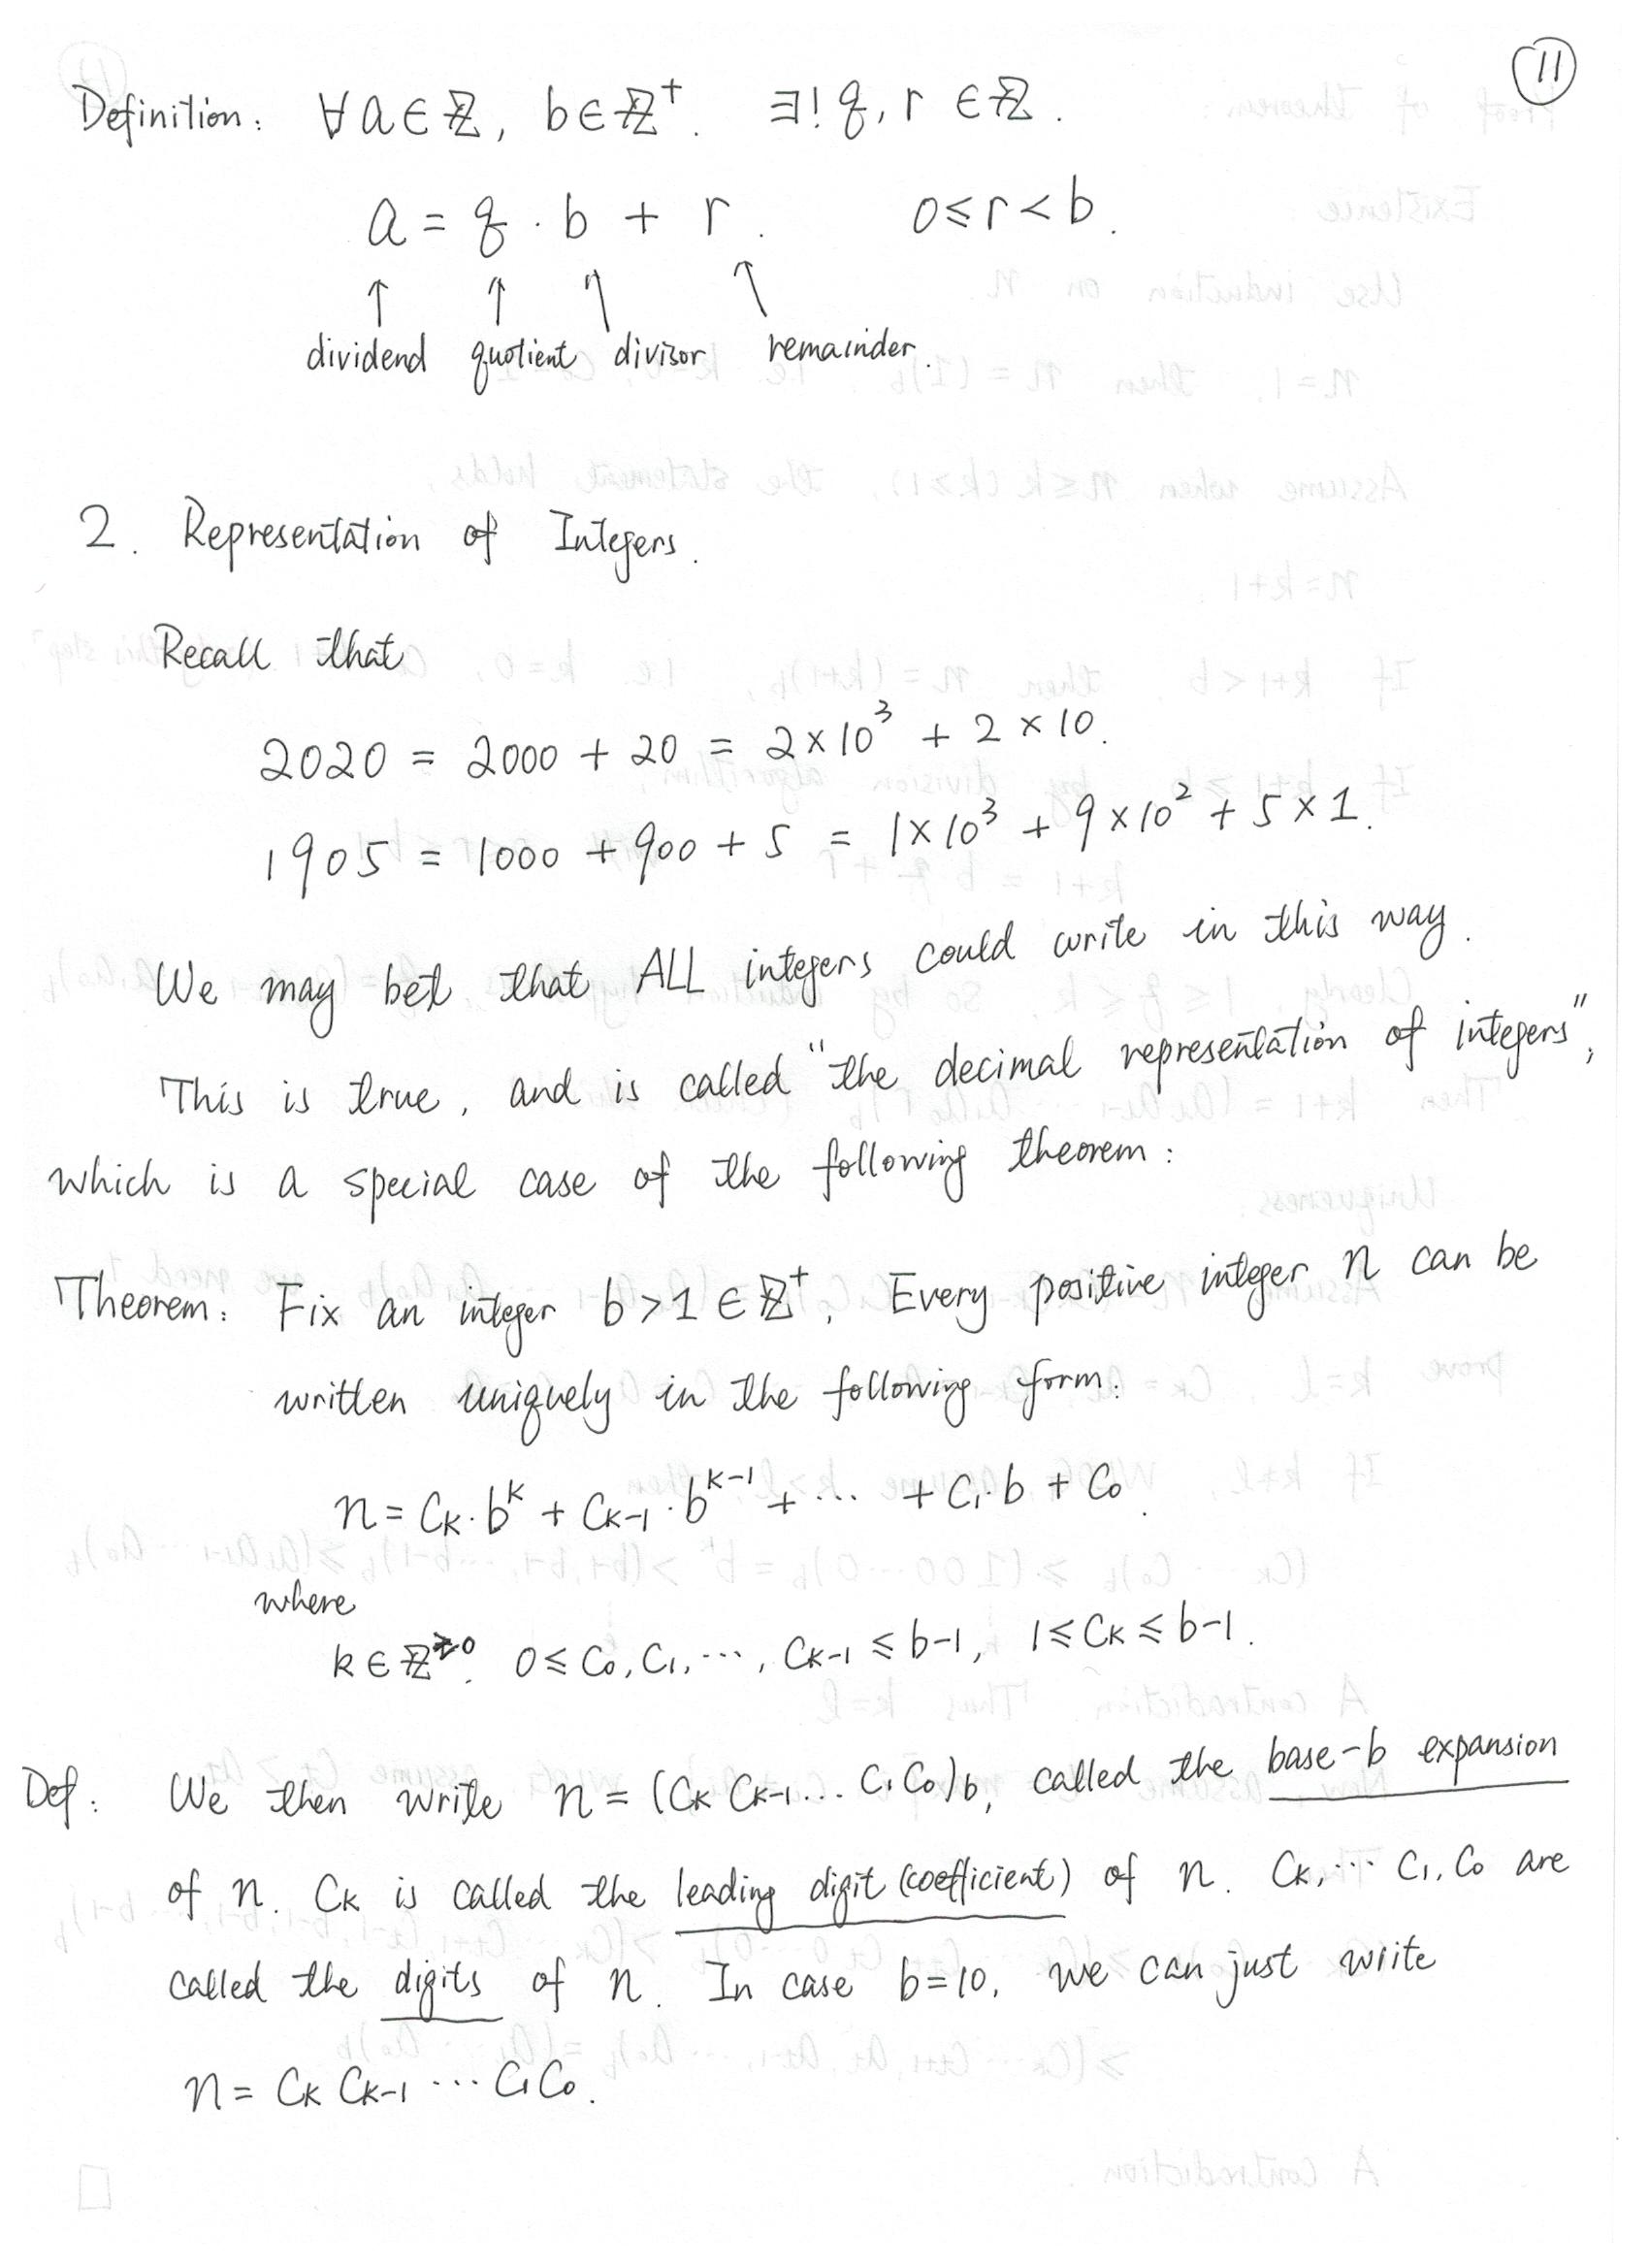 11
Definition: ∀ a ∈ ℤ, b ∈ ℤ⁺. ∃! q, r ∈ ℤ.
a = q · b + r. 0 ≤ r < b.
↑ ↑ ↑ ↑
dividend quotient divisor remainder.
2. Representation of Integers.
Recall that
2020 = 2000 + 20 = 2×10³ + 2×10.
1905 = 1000 + 900 + 5 = 1×10³ + 9×10² + 5×1.
We may bet that ALL integers could write in this way.
This is true, and is called "the decimal representation of integers",
which is a special case of the following theorem:
Theorem: Fix an integer b>1 ∈ ℤ⁺. Every positive integer n can be
written uniquely in the following form:
n = Cₖ·bᵏ + Cₖ₋₁·bᵏ⁻¹ + ··· + C₁·b + C₀.
where
k ∈ ℤ^≥0. 0 ≤ C₀, C₁, ···, Cₖ₋₁ ≤ b-1, 1 ≤ Cₖ ≤ b-1.
Def: We then write n = (Cₖ Cₖ₋₁... C₁ C₀)_b, called the base-b expansion
of n. Cₖ is called the leading digit (coefficient) of n. Cₖ, ··· C₁, C₀ are
called the digits of n. In case b=10, we can just write
n = Cₖ Cₖ₋₁ ··· C₁C₀.